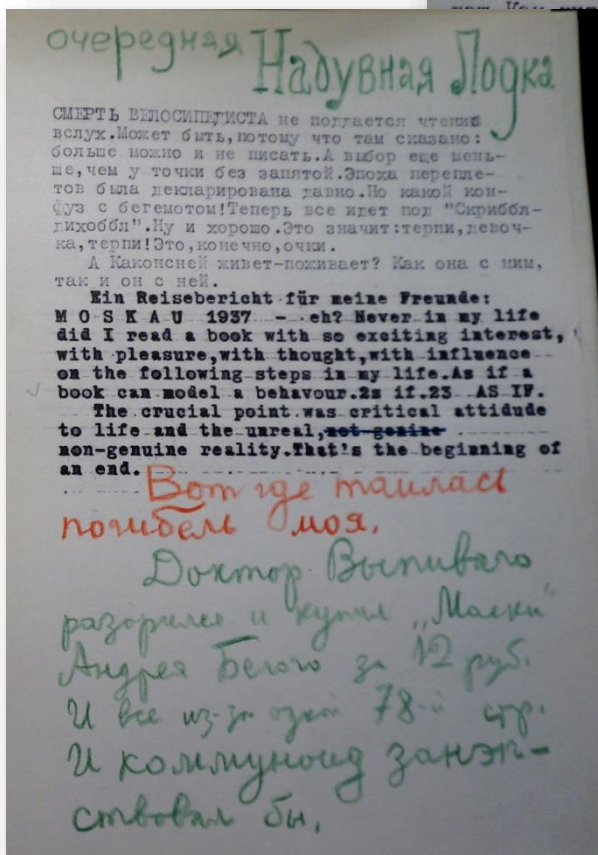 очередная Надувная Лодка
СМЕРТЬ ВЕЛОСИПЕДИСТА не поддается чтению
вслух.Может быть,потому что там сказано:
больше можно и не писать.А выбор еще мень-
ше,чем у точки без запятой.Эпоха перепле-
тов была декларирована давно.Но какой кон-
фуз с бегемотом!Теперь все идет под "Скриббл-
дихоббл".Ну и хорошо.Это значит:терпи,девоч-
ка,терпи!Это,конечно,очки.
А Каконсней живет-поживает? Как она с ним,
так и он с ней.
Ein Reisebericht für meine Freunde:
M O S K A U 1937 - eh? Never in my life
did I read a book with so exciting interest,
with pleasure,with thought,with influence
on the following steps in my life.As if a
book can model a behavour.2s if.23 AS IF.
The crucial point was critical attidude
to life and the unreal,not genine
non-genuine reality.That's the beginning of
an end.
Вот где таилась
погибель моя.
Доктор Выпивало
разорился и купил „Маски"
Андрея Белого за 12 руб.
И все из-за одной 78-й стр.
И коммуноид занэп-
ствовал бы.